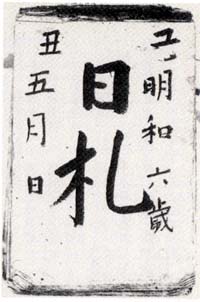 明和六歳
日札
丑五月日